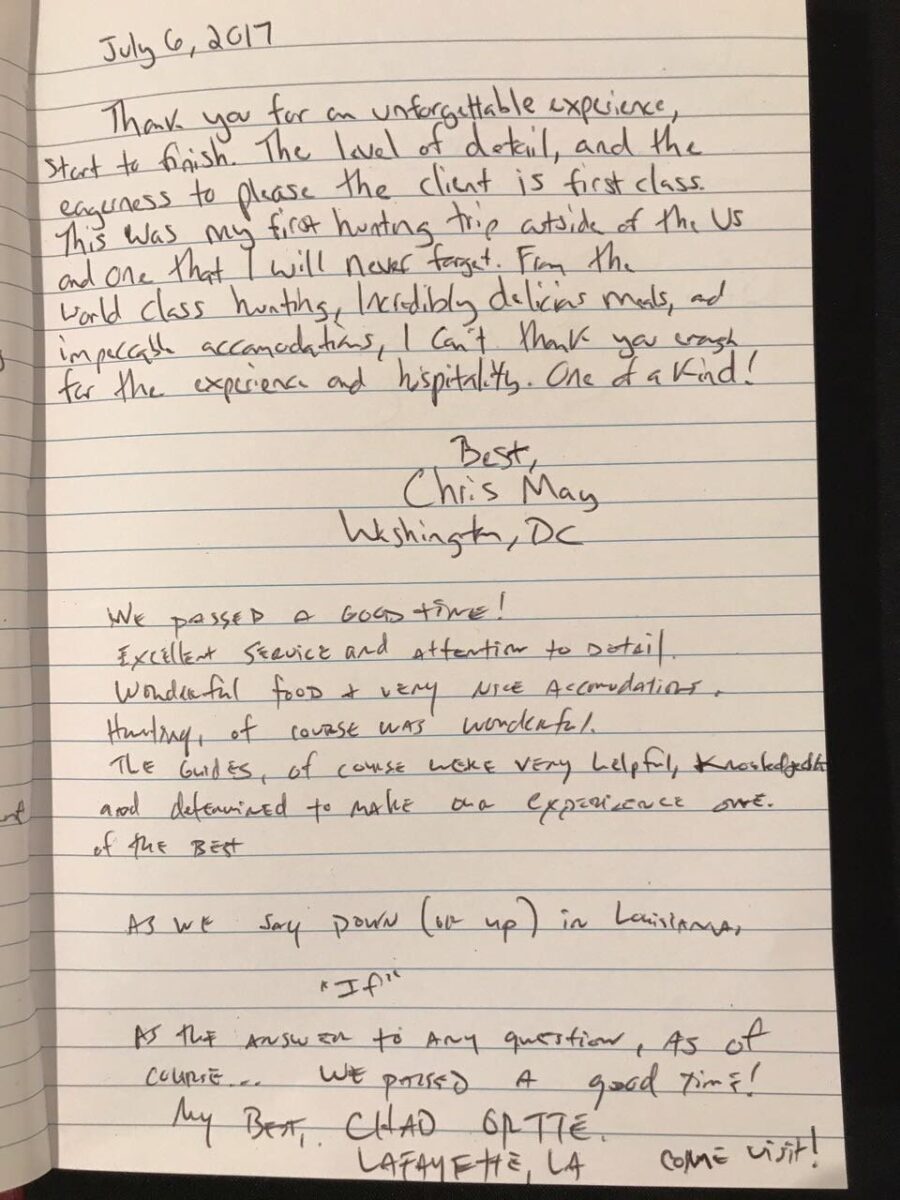 July 6, 2017
Thank you for an unforgettable experience,
start to finish. The level of detail, and the
eagerness to please the client is first class.
This was my first hunting trip outside of the US
and one that I will never forget. From the
world class hunting, Incredibly delicious meals, and
impeccable accomodations, I can't thank you enough
for the experience and hospitality. One of a Kind!
Best,
Chris May
Washington, DC
WE PASSED A GOOD TIME!
Excellent Service and Attention to Detail.
Wonderful food + very Nice Accomodations.
Hunting, of course was wonderful.
The Guides, of course were very helpful, Knowledgeable
and determined to make our experience one
of the BEST
AS WE say DOWN (or up) in Louisiana,
"If"
AS the answer to any question, As of
course... WE passed A good Time!
My Best, CHAD
LAFAYETTE, LA COME visit!